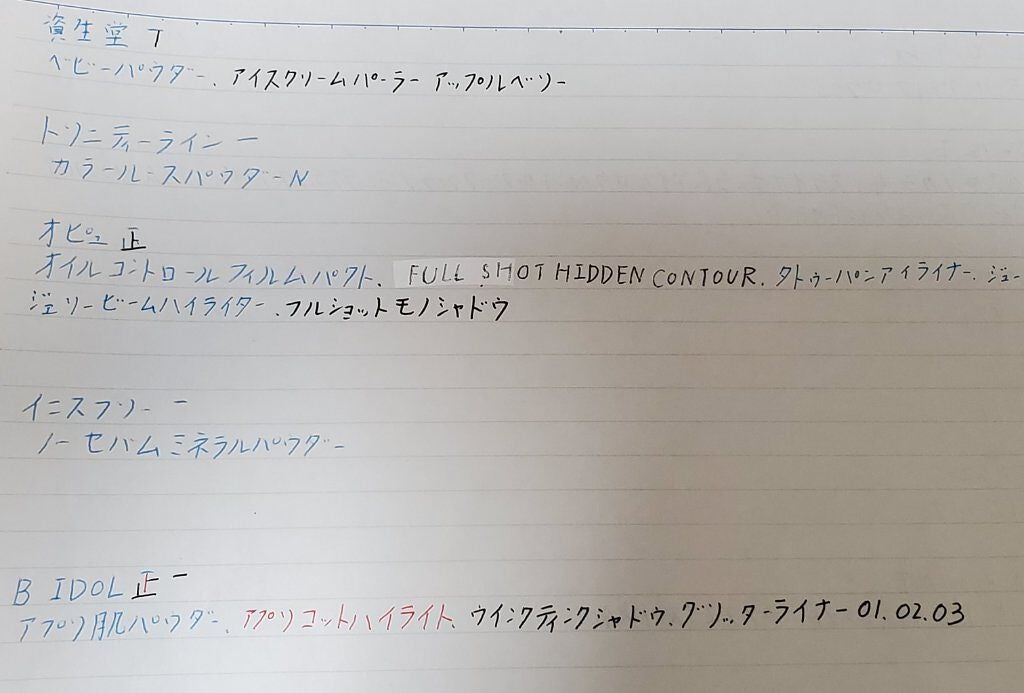 資生堂 T
ベビーパウダー、アイスクリームパーラー アップルベリー
トリニティーライン 一
カラールースパウダーN
オピュ 正
オイルコントロールフィルムパクト、FULL SHOT HIDDEN CONTOUR、タトゥーパンアイライナー、ジュー
ジェリービームハイライター、フルショットモノシャドウ
イニスフリー 一
ノーセバムミネラルパウダー
B IDOL 正一
アプリ肌パウダー、アプリコットハイライト、ウインクティンクシャドウ、グリッターライナー01.02.03